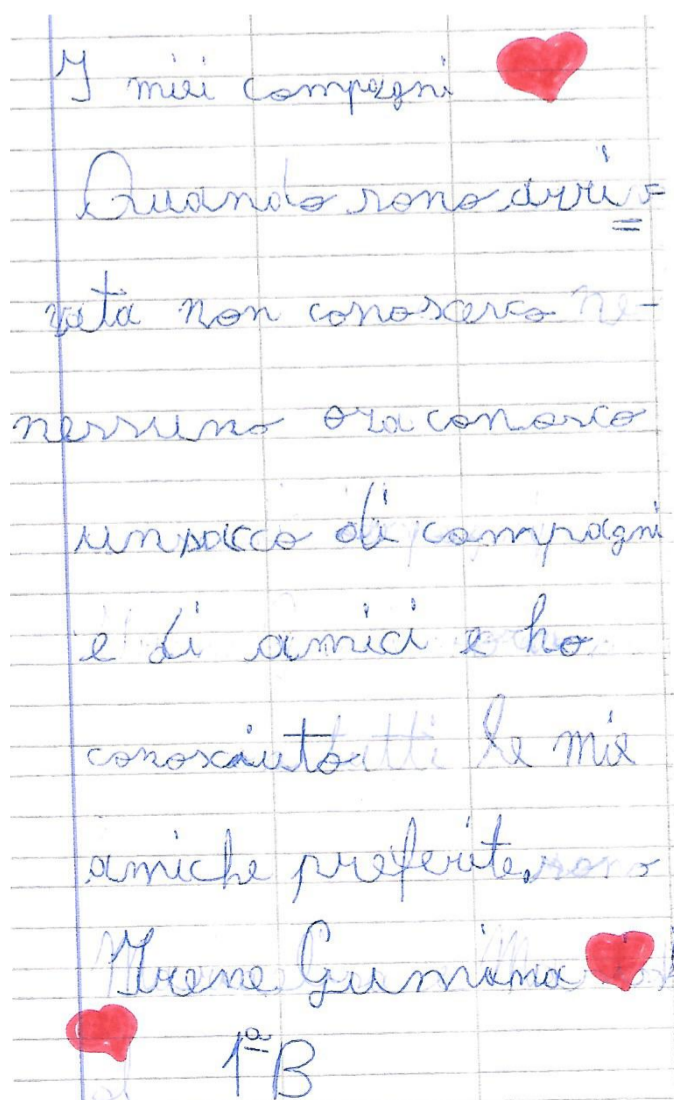 I miei compagni
Quando sono arri=
vata non conoscevo ne-
nessuno ora conosco
un sacco di compagni
e di amici e ho
conosciuto tutti le mie
amiche preferite, sono
Irene Gummina
1ª B